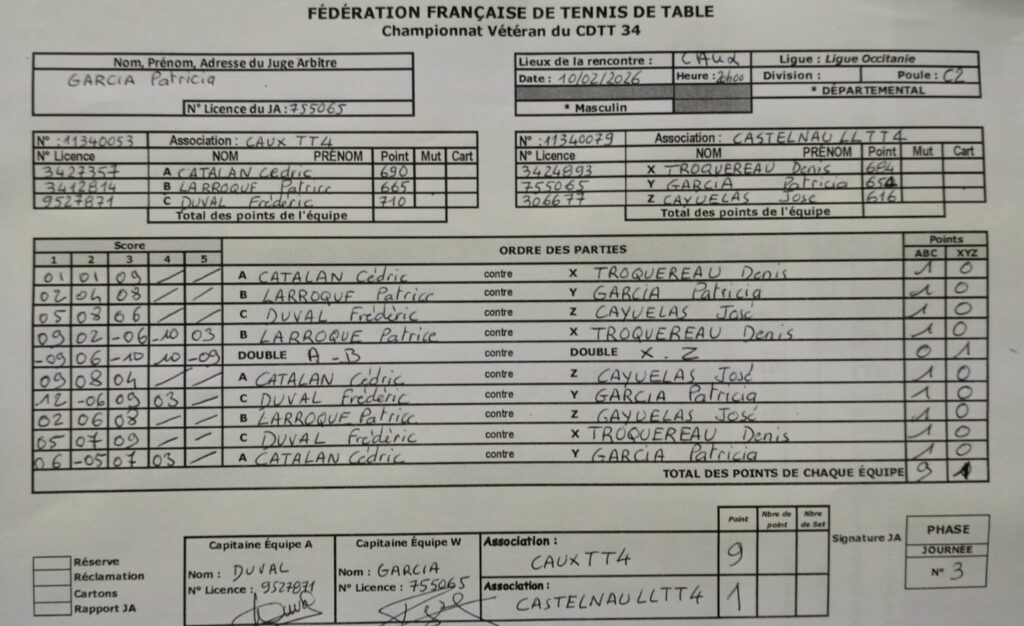 FÉDÉRATION FRANÇAISE DE TENNIS DE TABLE
Championnat Vétéran du CDTT 34
Nom, Prénom, Adresse du Juge Arbitre
GARCIA Patricia
N° Licence du JA : 755065
Lieux de la rencontre : CAUX Ligue : Ligue Occitanie
Date : 10/02/2026 Heure : 20h00 Division : Poule : C2
* DÉPARTEMENTAL
* Masculin
N° : 11340053 Association : CAUX TT4
N° Licence NOM PRÉNOM Point Mut Cart
3427357 A CATALAN Cédric 690
3412814 B LARROQUE Patrice 665
9527871 C DUVAL Frédéric 710
Total des points de l'équipe
N° : 11340079 Association : CASTELNAU LLTT4
N° Licence NOM PRÉNOM Point Mut Cart
3424893 X TROQUEREAU Denis 684
755065 Y GARCIA Patricia 654
306677 Z CAYUELAS José 616
Total des points de l'équipe
Score ORDRE DES PARTIES Points
1 2 3 4 5 ABC XYZ
01 01 09 / / A CATALAN Cédric contre X TROQUEREAU Denis 1 0
02 04 08 / / B LARROQUE Patrice contre Y GARCIA Patricia 1 0
05 08 06 / / C DUVAL Frédéric contre Z CAYUELAS José 1 0
09 02 -06 -10 03 B LARROQUE Patrice contre X TROQUEREAU Denis 1 0
-09 06 -10 10 -09 DOUBLE A - B contre DOUBLE X . Z 0 1
09 08 04 / / A CATALAN Cédric contre Z CAYUELAS José 1 0
12 -06 09 03 / C DUVAL Frédéric contre Y GARCIA Patricia 1 0
02 06 08 / / B LARROQUE Patrice contre Z CAYUELAS José 1 0
05 07 09 / / C DUVAL Frédéric contre X TROQUEREAU Denis 1 0
06 -05 07 03 / A CATALAN Cédric contre Y GARCIA Patricia 1 0
TOTAL DES POINTS DE CHAQUE ÉQUIPE 9 1
Réserve
Réclamation
Cartons
Rapport JA
Capitaine Équipe A
Nom : DUVAL
N° Licence : 9527871
Capitaine Équipe W
Nom : GARCIA
N° Licence : 755065
Point Nbre de point Nbre de Set
Association : CAUX TT4 9
Association : CASTELNAU LLTT4 1
Signature JA
PHASE
JOURNÉE
N° 3